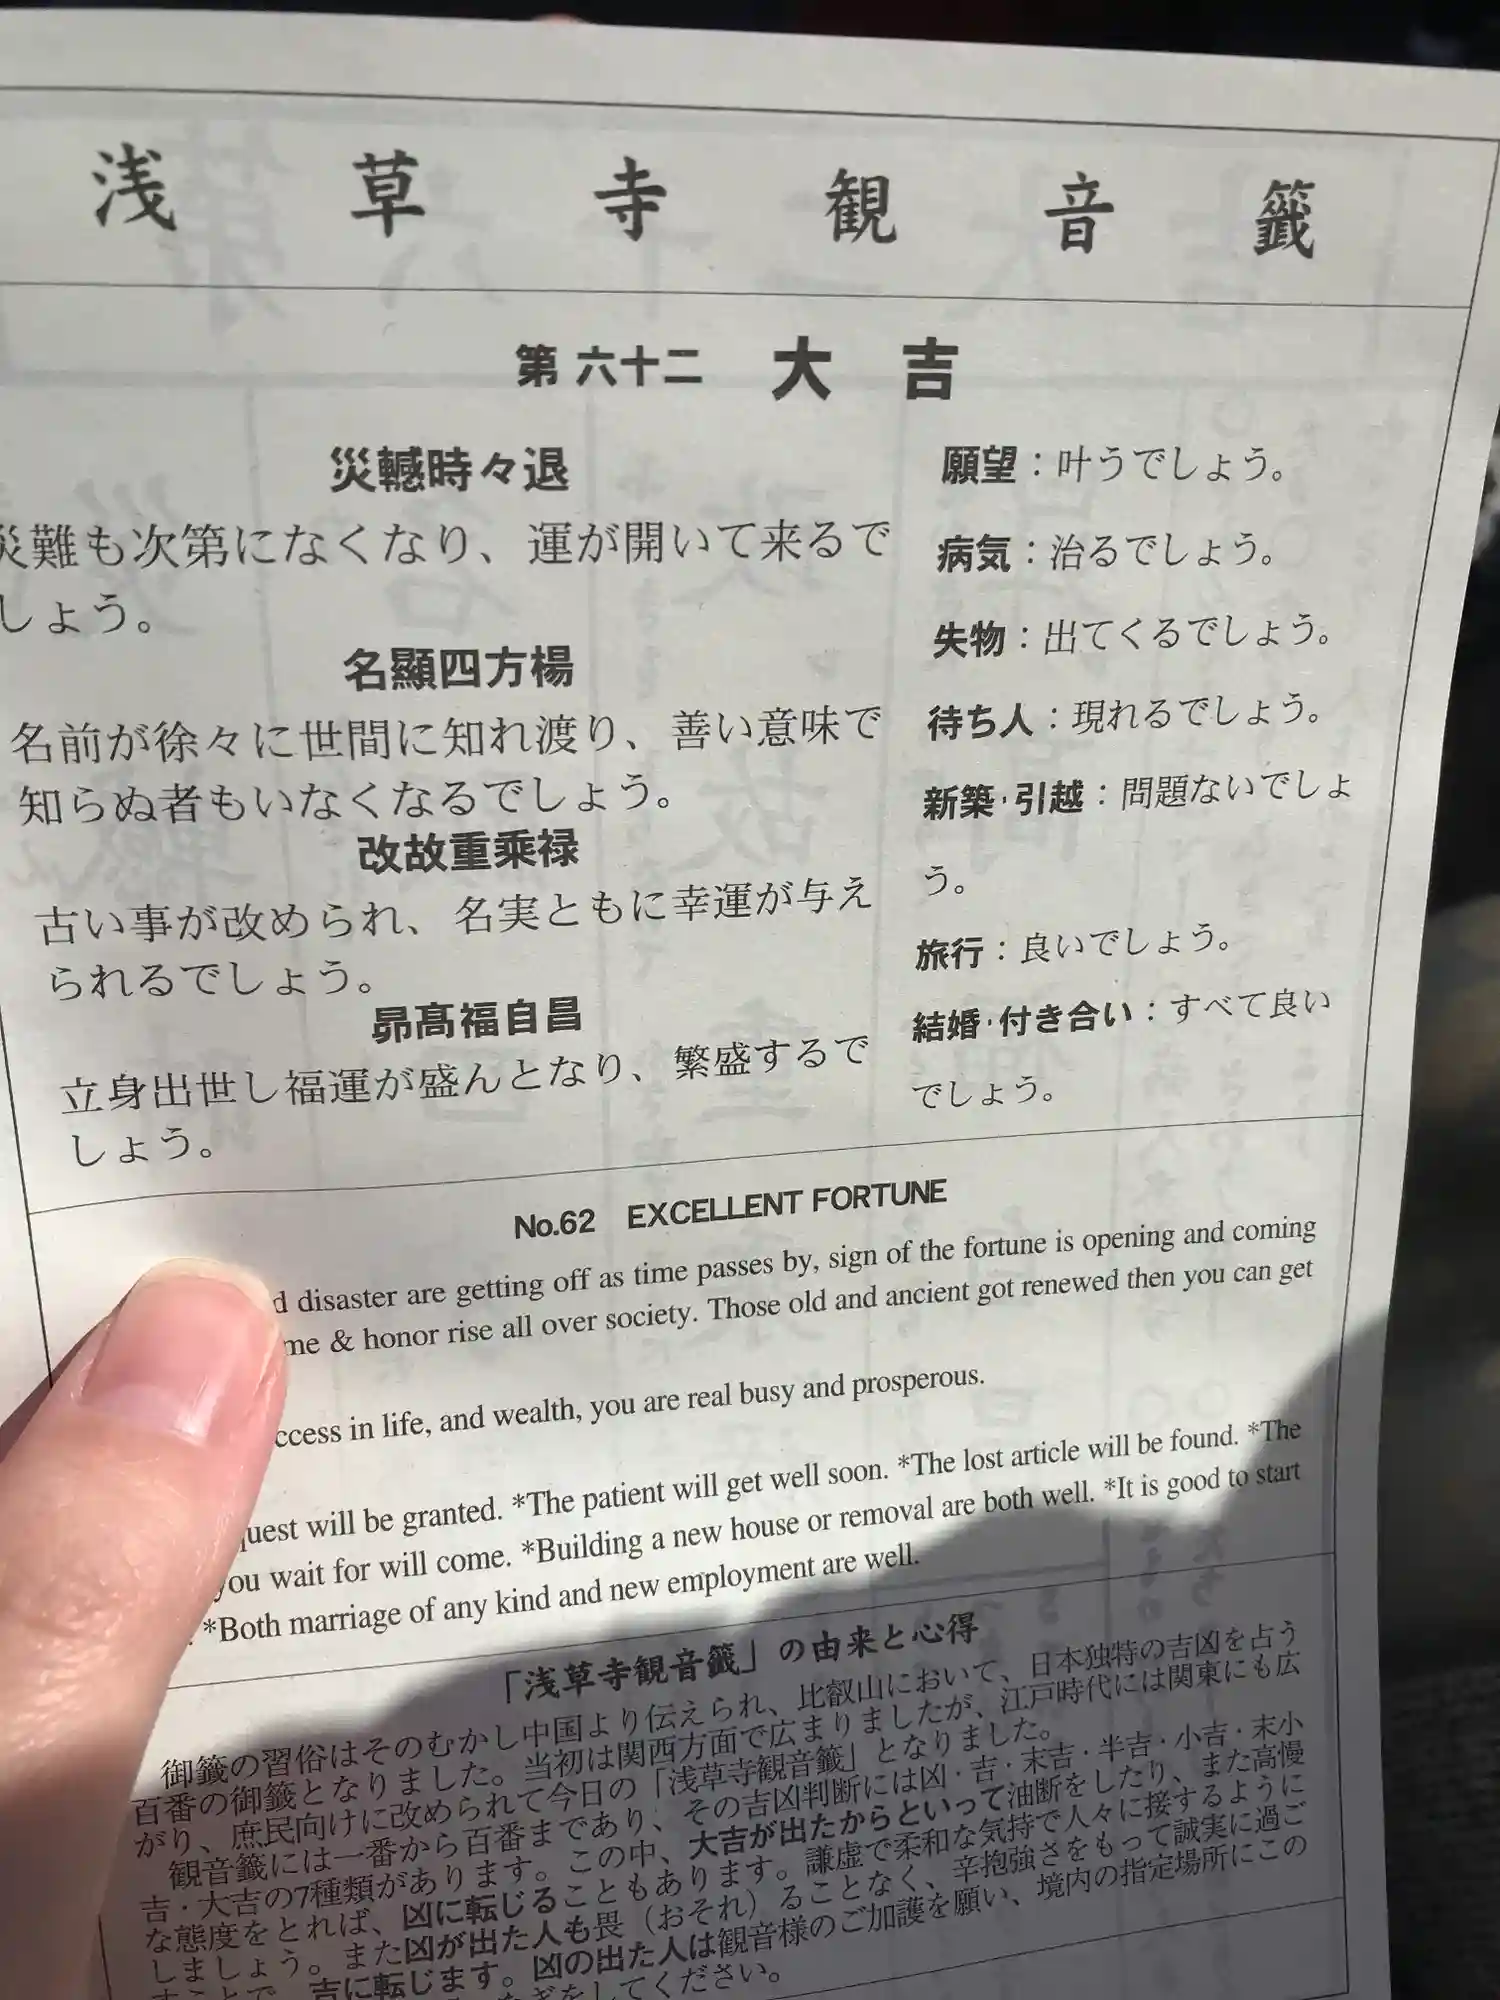 浅草寺観音籤
第六十二 大吉
災轗時々退
災難も次第になくなり、運が開いて来るで
しょう。
名顯四方楊
名前が徐々に世間に知れ渡り、善い意味で
知らぬ者もいなくなるでしょう。
改故重乘禄
古い事が改められ、名実ともに幸運が与え
られるでしょう。
昴髙福自昌
立身出世し福運が盛んとなり、繁盛するで
しょう。
願望：叶うでしょう。
病気：治るでしょう。
失物：出てくるでしょう。
待ち人：現れるでしょう。
新築·引越：問題ないでしょ
う。
旅行：良いでしょう。
結婚·付き合い：すべて良い
でしょう。
No.62 EXCELLENT FORTUNE
disaster are getting off as time passes by, sign of the fortune is opening and coming
& honor rise all over society. Those old and ancient got renewed then you can get
in life, and wealth, you are real busy and prosperous.
will be granted. *The patient will get well soon. *The lost article will be found. *The
you wait for will come. *Building a new house or removal are both well. *It is good to start
. *Both marriage of any kind and new employment are well.
「浅草寺観音籤」の由来と心得
御籤の習俗はそのむかし中国より伝えられ、比叡山において、日本独特の吉凶を占う
百番の御籤となりました。当初は関西方面で広まりましたが、江戸時代には関東にも広
がり、庶民向けに改められて今日の「浅草寺観音籤」となりました。
観音籤には一番から百番まであり、その吉凶判断には凶·吉·末吉·半吉·小吉·末小
吉·大吉の7種類があります。この中、大吉が出たからといって油断をしたり、また高慢
な態度をとれば、凶に転じることもあります。謙虚で柔和な気持で人々に接するように
しましょう。また凶が出た人も畏（おそれ）ることなく、辛抱強さをもって誠実に過ご
すことで、吉に転じます。凶の出た人は観音様のご加護を願い、境内の指定場所にこの
をしてください。